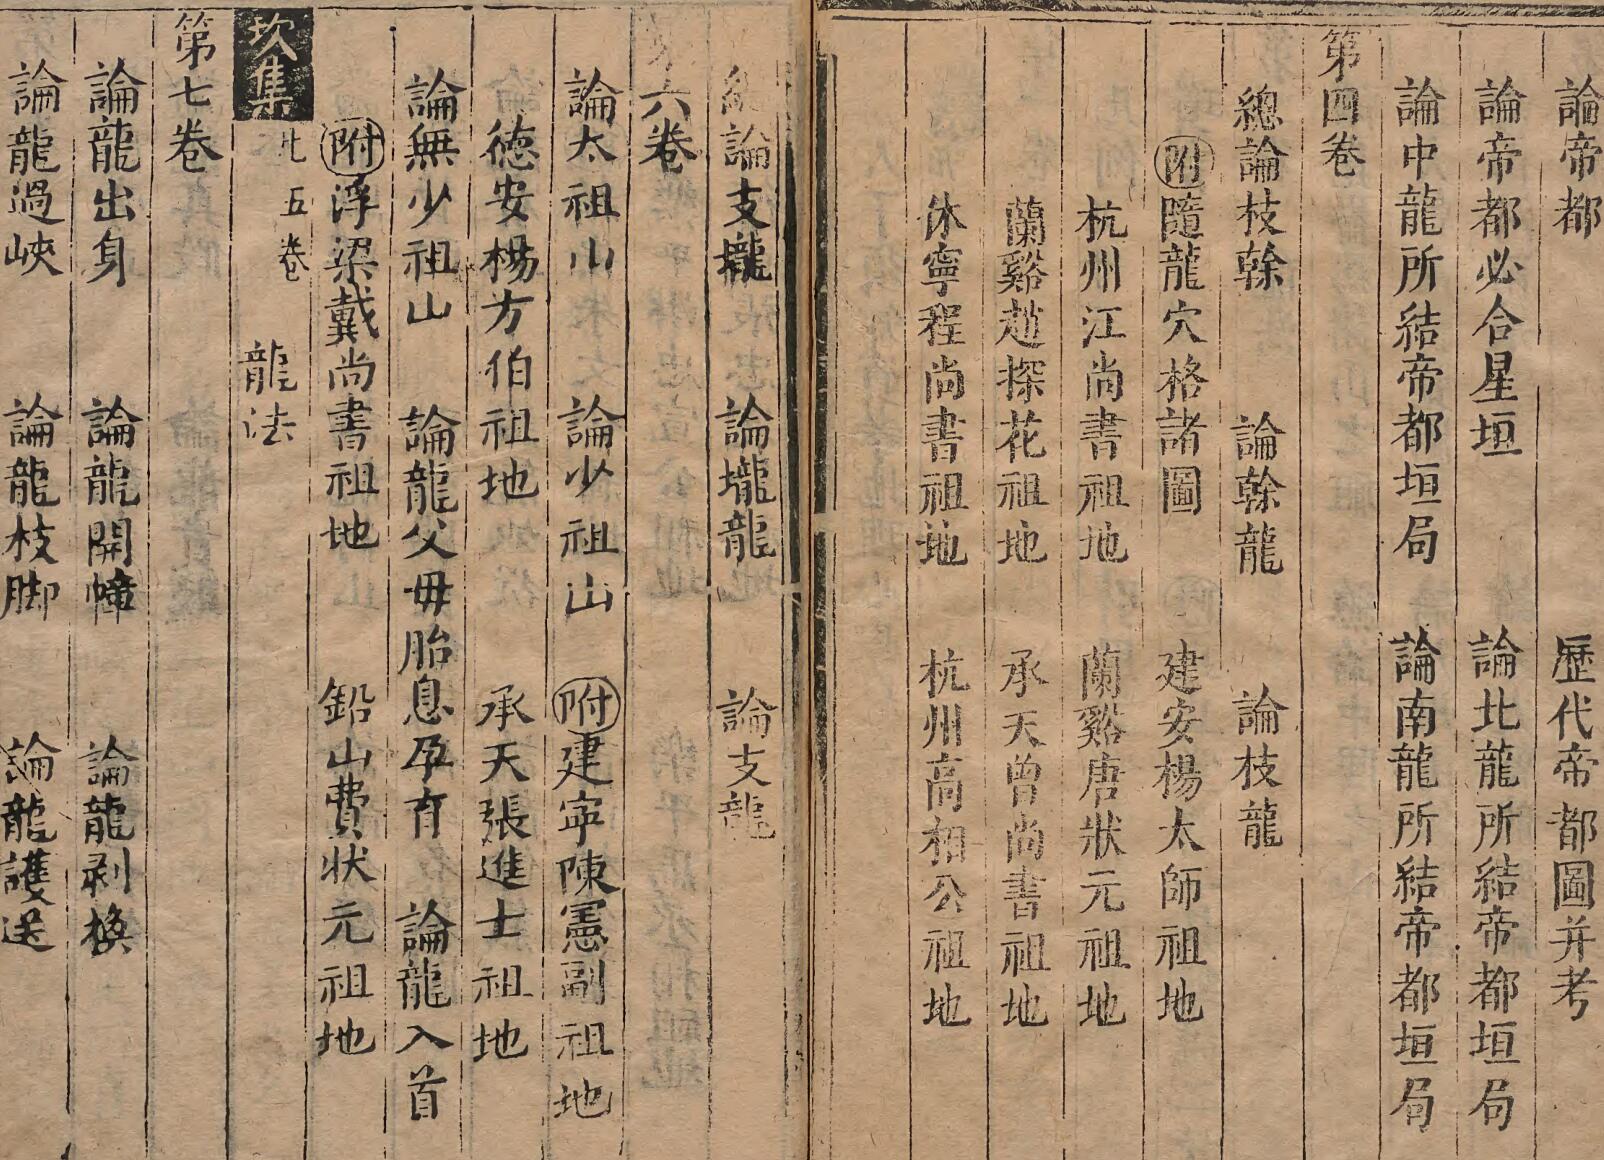 論帝都　歷代帝都圖并考
論帝都必合星垣　論北龍所結帝都垣局
論中龍所結帝都垣局　論南龍所結帝都垣局
第四卷
總論枝幹　論幹龍　論枝龍
附隨龍穴格諸圖　建安楊太師祖地
杭州江尚書祖地　蘭谿唐狀元祖地
蘭谿趙探花祖地　承天曾尚書祖地
休寧程尚書祖地　杭州高相公祖地
論支壠　論壠龍　論支龍
六卷
論太祖山　論少祖山　附建寧陳憲副祖地
德安楊方伯祖地　承天張進士祖地
論無少祖山　論龍父母胎息孕育　論龍入首
附浮梁戴尚書祖地　鉛山費狀元祖地
坎集　五卷　龍法
第七卷
論龍出身　論龍開幛　論龍剥換
論龍過峽　論龍枝脚　論龍護送